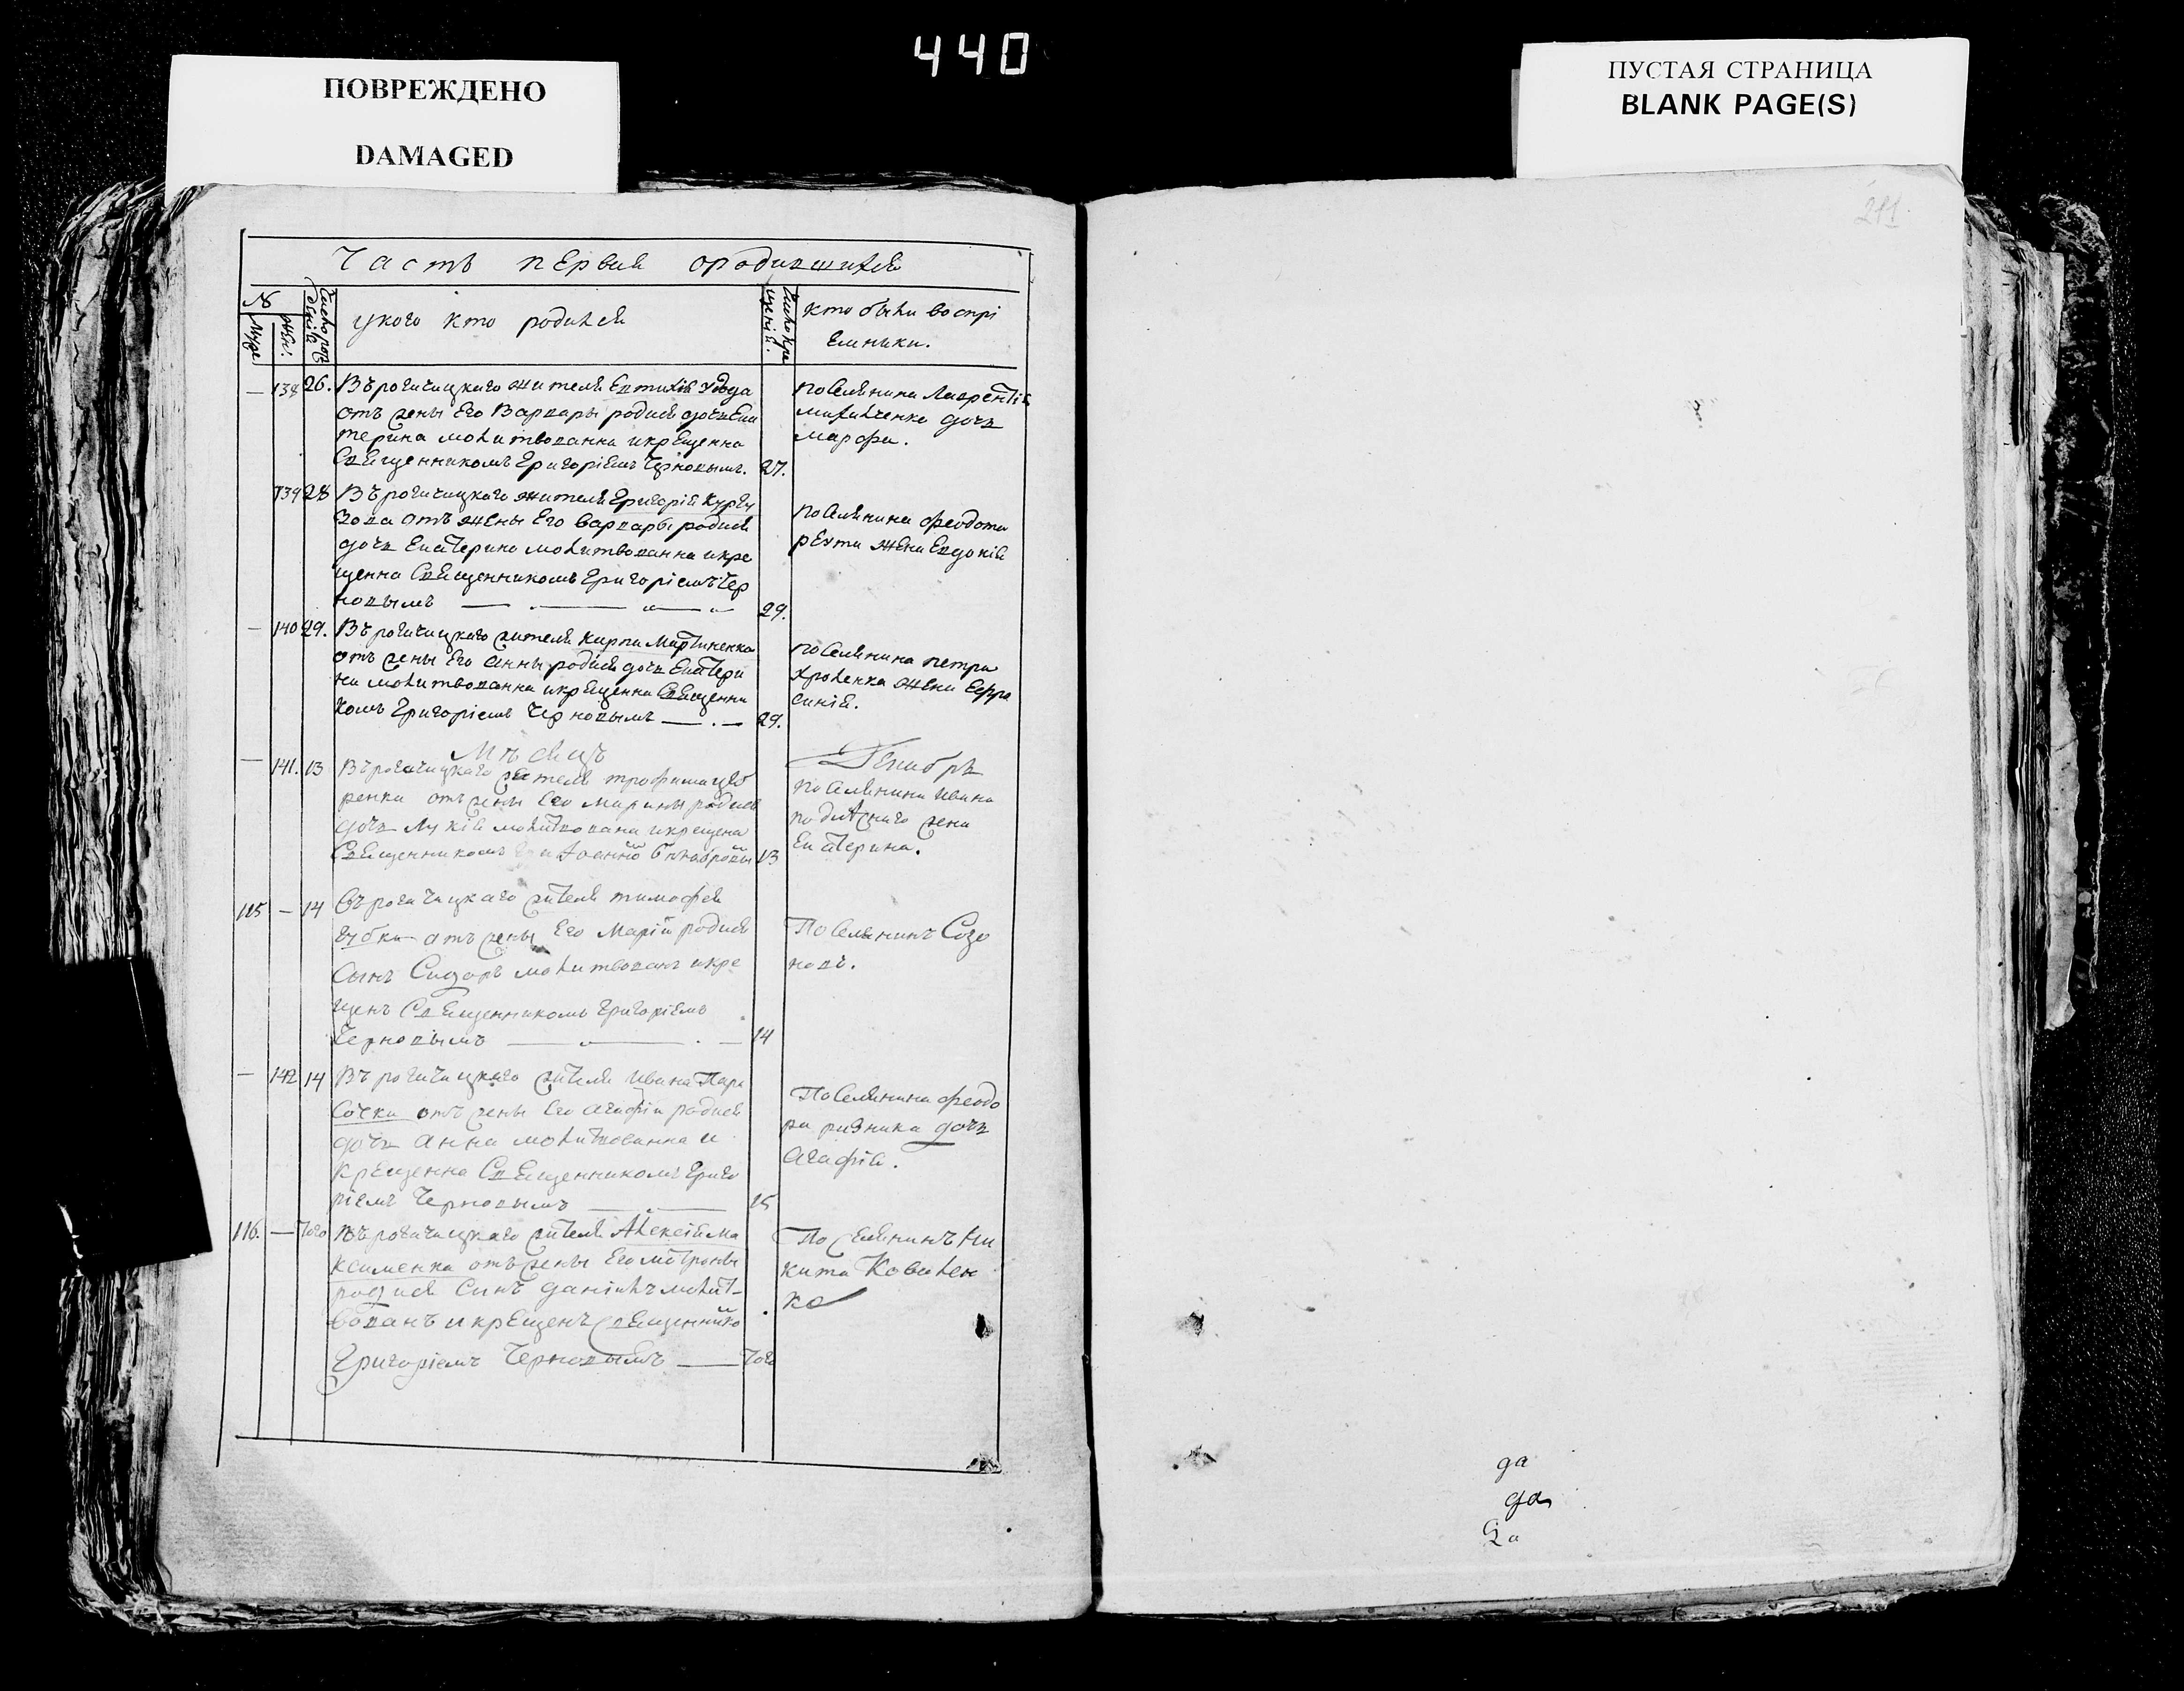 440
ПОВРЕЖДЕНО
DAMAGED
ПУСТАЯ СТРАНИЦА
BLANK PAGE(S)
211.
Часть первая ородившихся
№
Муже
жен.
Число рож
денія
укого кто родился
Число кре
щенія.
кто были воспрі
емники.
— 138 26. Въ рогачицкаго жителя Евтихія
отъ жены его Варвары родися дочь Ека
терина молитвованна икрещенна
Священникомъ Григоріемъ Черновымъ. 27.
поселянина Лаврентія
михайленка дочь
марфа.
139 28 Въ рогачицкаго жителя Григорія
отъ жены его варвары родися
дочь Екатерина молитвованна икре
щенна Священникомъ Григоріемъ Чер
новымъ 29.
поселянина феодота
жена Евдокія
— 140 29. Въ рогачицкаго жителя карпа Мартиненка
отъ жены Его анны родися дочь Екатери
на молитвованна икрещенна Священни
комъ Григоріемъ Черновымъ — . — 29.
поселянина петра
жена Ефро
синія.
Мѣсяцъ Декабрь
— 141. 13 Въ рогачицкаго жителя трофима
ренка отъ жены Его марины родися
дочь молитвована икрещена
Священникомъ 13
поселянина ивана
жена
Екатерина.
115 — 14 Въ рогачицкаго жителя тимофея
губки отъ жены Его Маріи родися
Сынъ Сидоръ молитвованъ икре
щенъ Священникомъ Григоріемъ
Черновымъ 14
Поселянинъ Созо
новъ.
— 142 14 Въ рогачицкаго жителя ивана Пара
сочки отъ жены Его агафіи родися
дочь анна молитвованна и
крещенна Священникомъ Григо
ріемъ Черновымъ 15
Поселянина феодо
ра ризника дочь
агафія.
116. — того Въ рогачицкаго жителя Алексія ма
ксименка отъ жены Его мотроны
родися синъ даніилъ молит-
вованъ и крещенъ священнико
Григоріемъ Черновымъ — того
Поселянинъ Ни
кита Ковален
ко
да
да